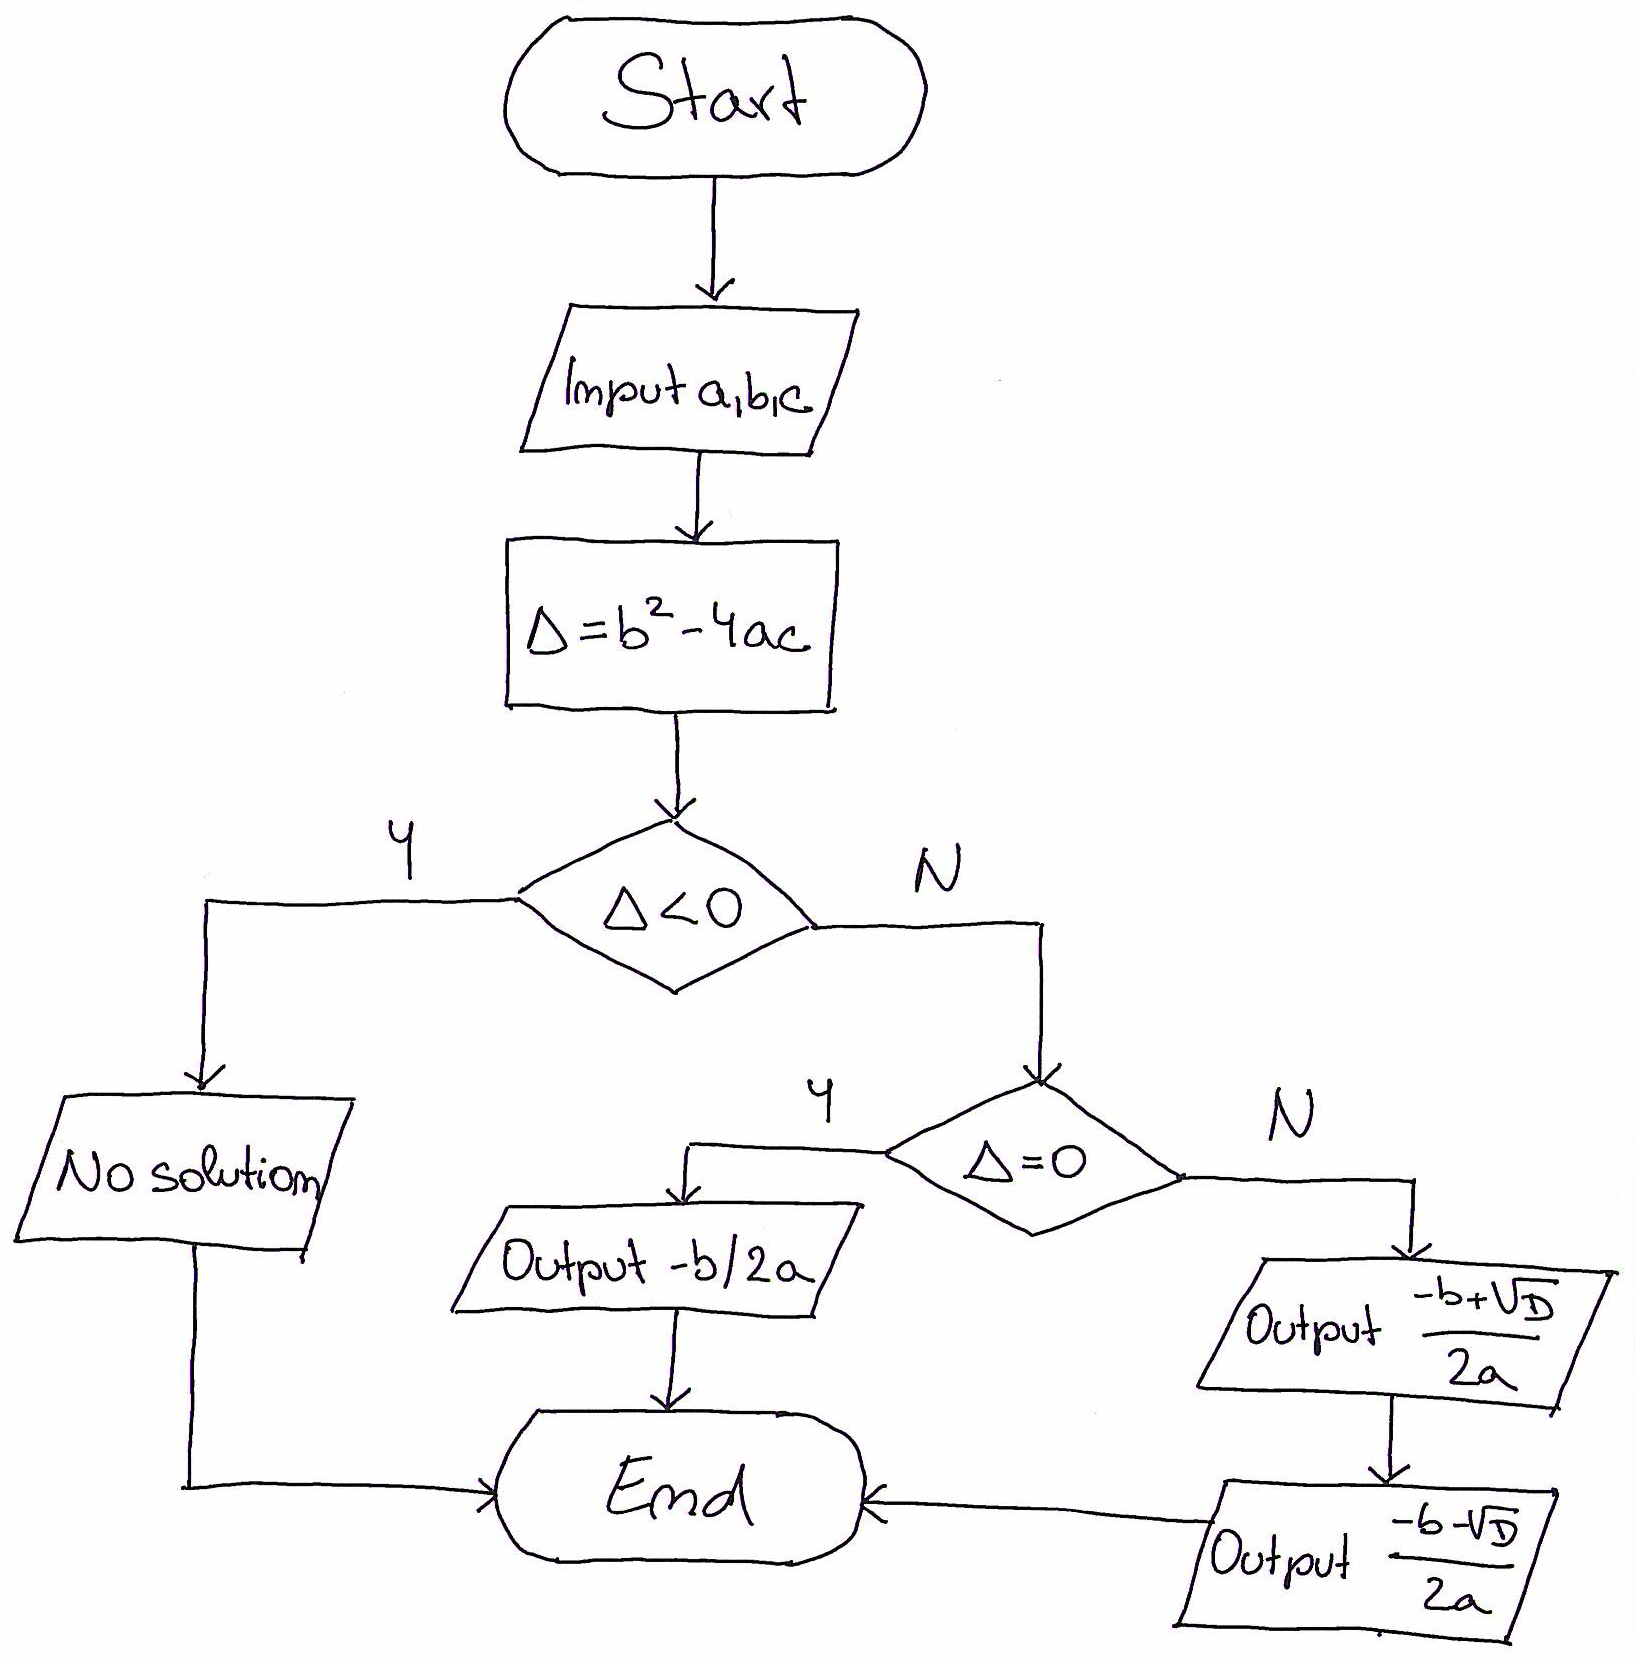 Start
Input a,b,c
Δ=b²-4ac
Y
N
Δ<0
Y
N
No solution
Δ=0
Output -b/2a
Output -b+√D
2a
End
Output -b-√D
2a